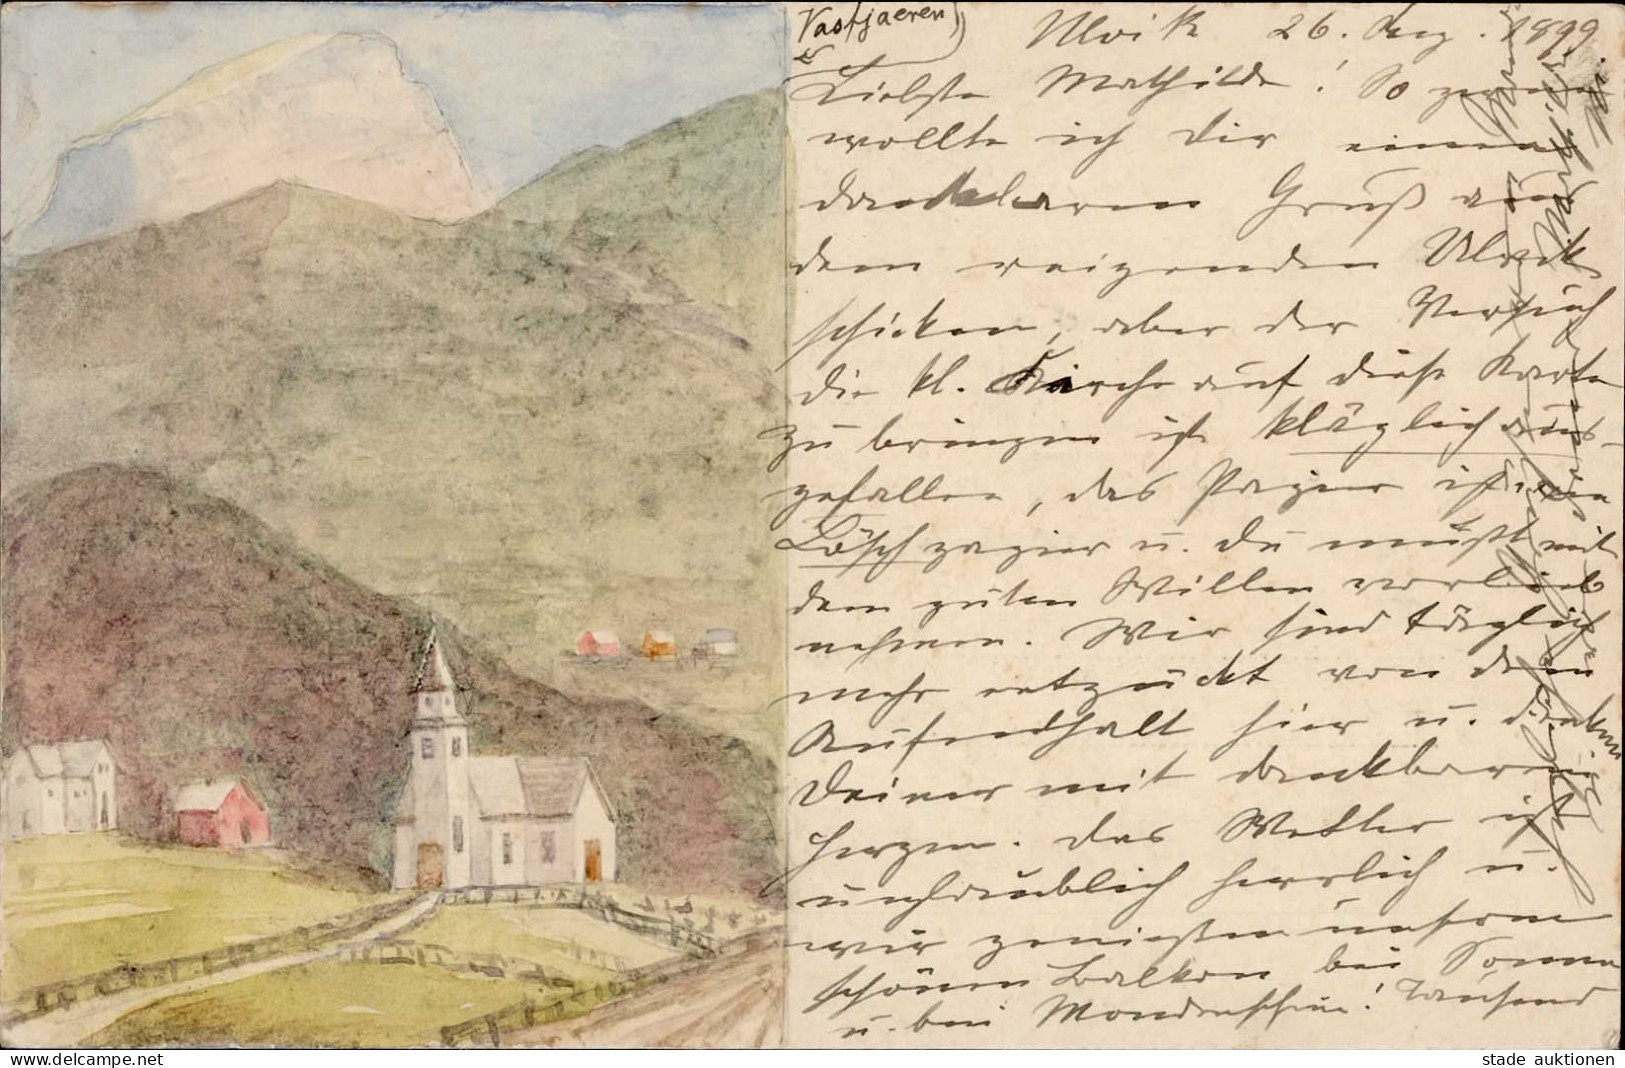 Vasfjaeren
Ulvik 26. Aug. 1899
Liebste Mathilde! So gerne
wollte ich Dir einen
dankbaren Gruß aus
dem reizenden Ulvik
schicken, aber der Versuch
die kl. Kirche auf diese Karte
zu bringen ist kläglich aus-
gefallen, das Papier ist wie
Löschpapier u. Du mußt mit
dem guten Willen vorlieb
nehmen. Wir sind täglich
mehr entzückt von dem
Aufendhalt hier u. denken
Deiner mit dankbarem
Herzen. Das Wetter ist
unglaublich herrlich u.
wir genießen unsern
schönen Balkon bei Sonne
u. bei Mondenschein! Tausend
delcampe.net
stade auktionen